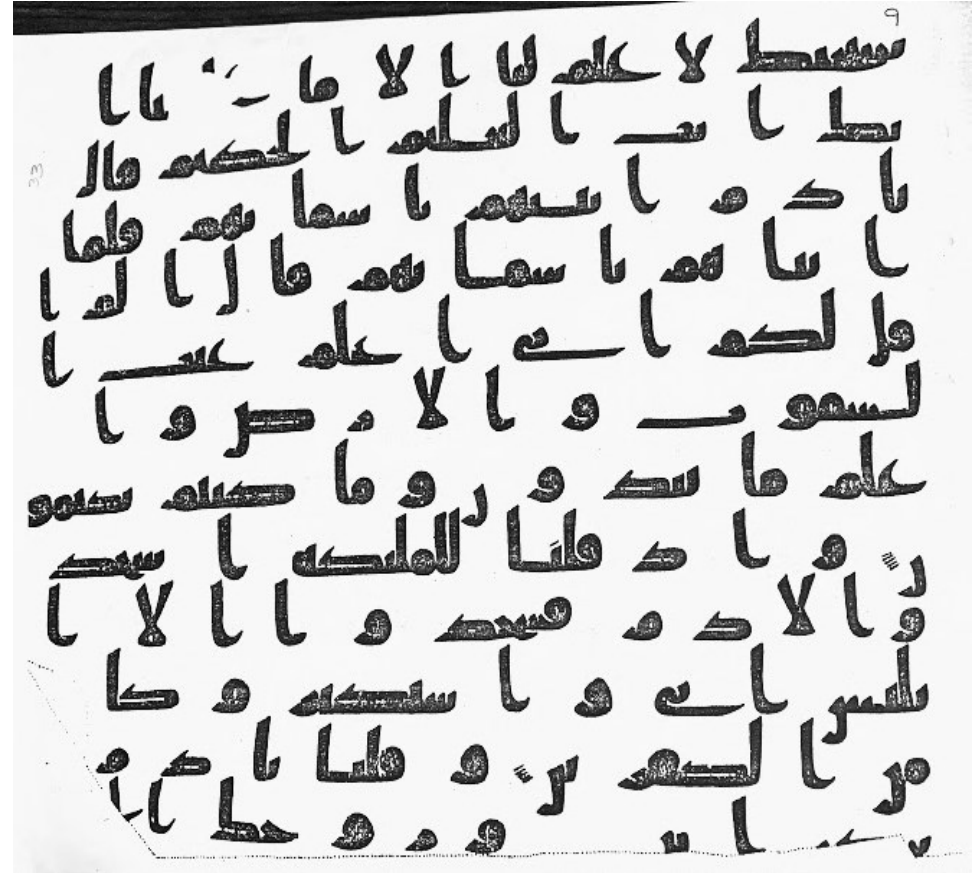 9
سبحنك لا علم لنا الا ما نا ا
نك انت العليم الحكيم قال
33
يادم انبئهم باسمائهم فلما
انباهم باسمائهم قال الم ا
قل لكم اني اعلم غيب ا
لسموت والارض و ا
علم ما تبدون وما كنتم تكتمو
ن واذ قلنا للملئكة اسجد
وا لادم فسجدوا الا ا
بليس ابى واستكبر وكا
ن من الكفرين وقلنا يادم